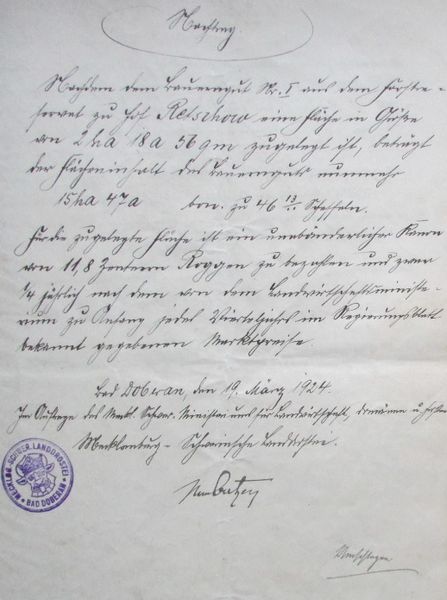 Nachtrag.
Nachdem dem Bauerngut Nr. I aus dem Forstre-
servat zu Hof Retschow eine Fläche in Größe
von 2 ha 18 a 56 qm zugelegt ist, beträgt
der Flächeninhalt des Bauernguts nunmehr
15 ha 47 a bon. zu 46 Scheffeln.
Für die zugelegte Fläche ist ein unabänderlicher Kanon
von 11,8 Zentnern Roggen zu bezahlen und zwar
1/4 jährlich nach dem von dem Landwirtschaftsministe-
rium zu Anfang jedes Vierteljahrs im Regierungsblatt
bekannt gegebenen Marktpreise.
Bad Doberan, den 19. März 1924.
Im Auftrage des Meckl. Schwer. Ministeriums für Landwirtschaft, Domänen u. Forsten
Mecklenburg-Schwerinsche Landdrostei.
MECKLBG. SCHWER. LANDDROSTEI
* BAD DOBERAN *
Umschlagen